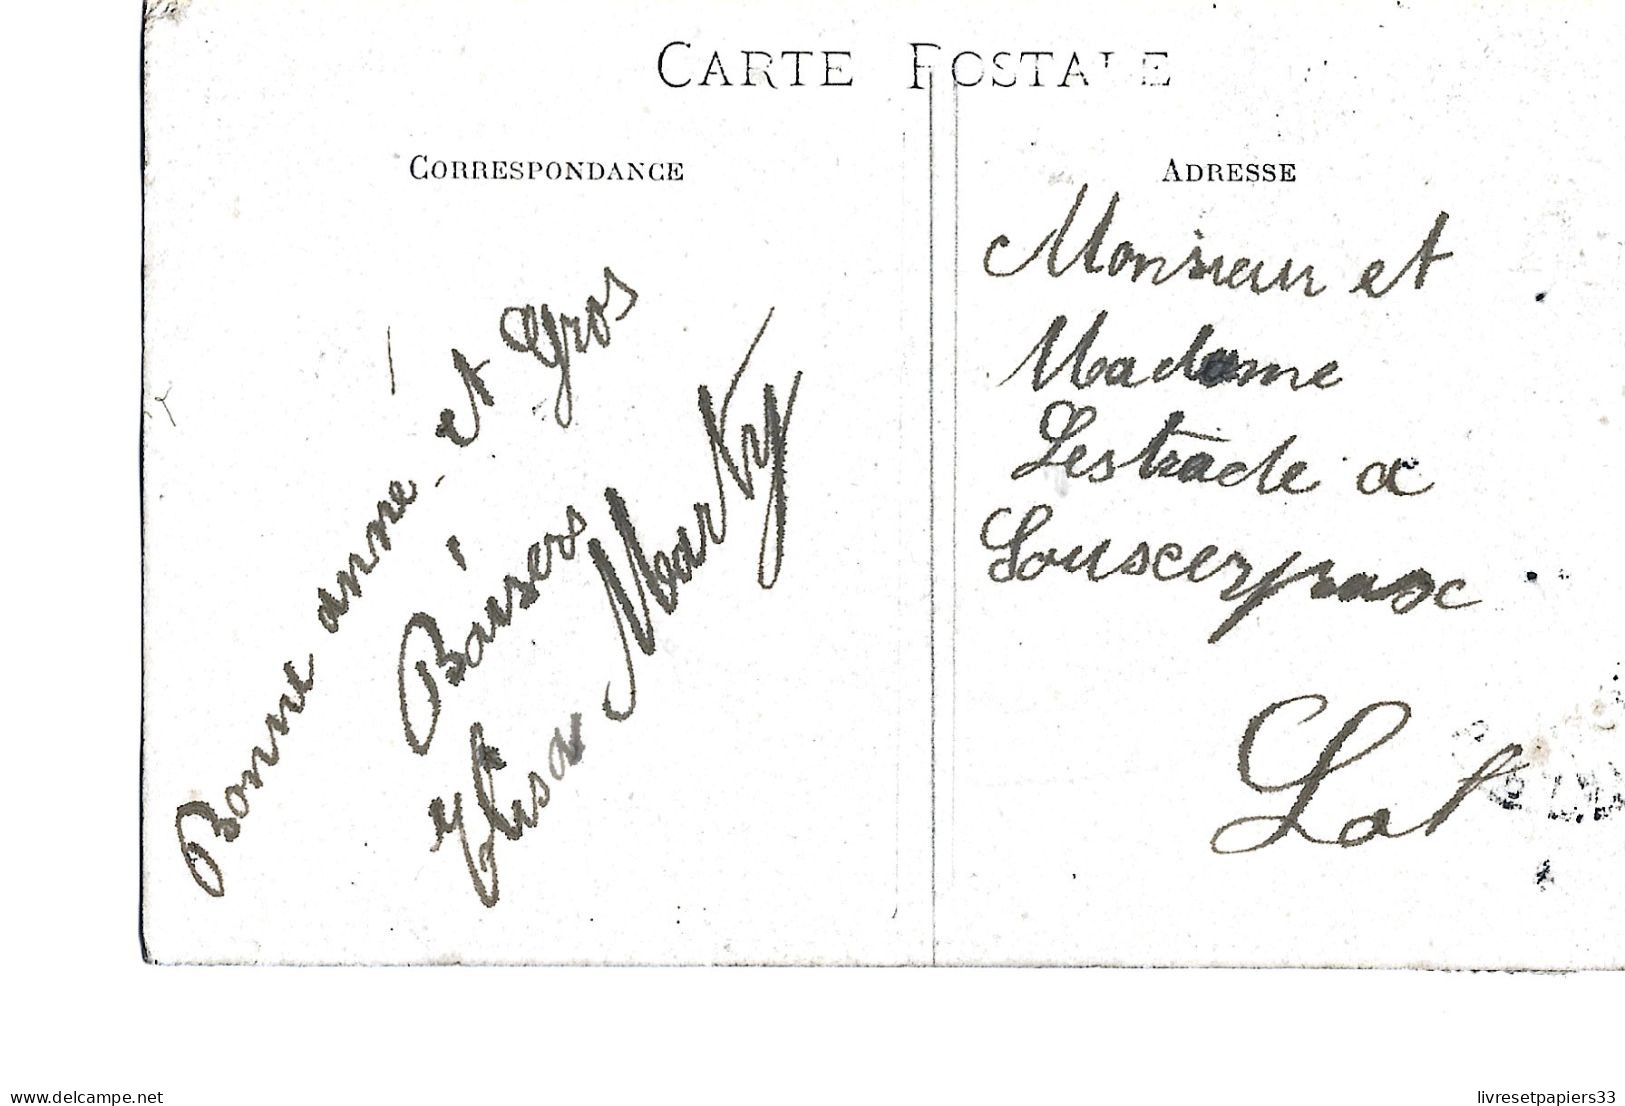 CARTE POSTALE
CORRESPONDANCE
Bonne anné et Gros
Baisers
Elisa Marty
ADRESSE
Monsieur et
Madame
Lestrade a
Sousceyrac
Lot
www.delcampe.net
livresetpapiers33